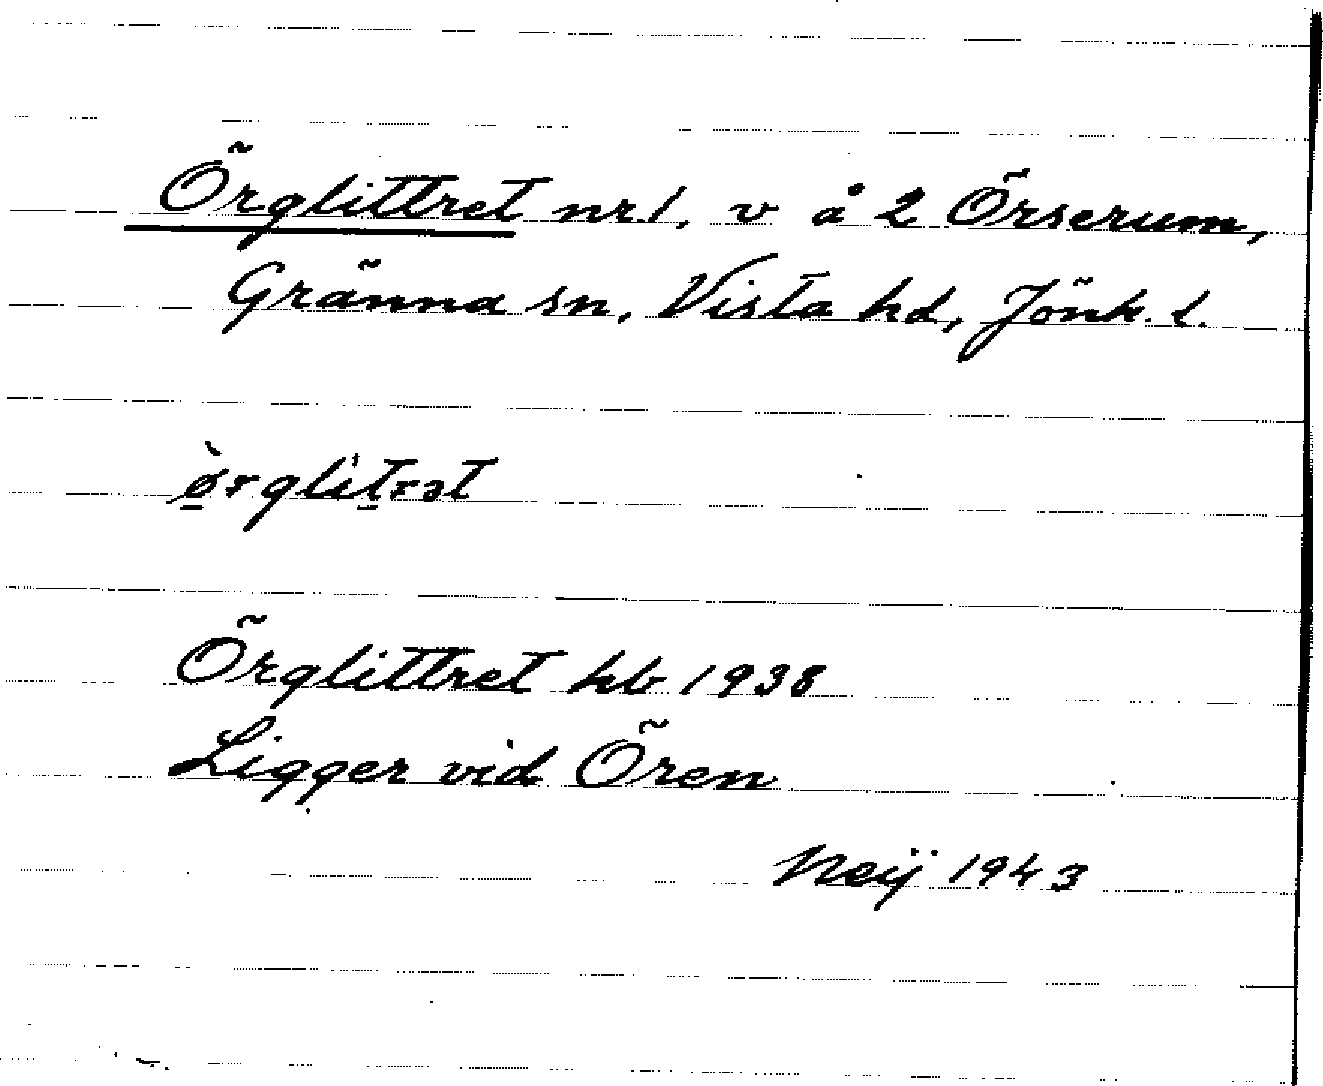 Örglittret nr 1, v å 2 Örserum,
Gränna sn, Vista hd, Jönk. l.
ø̠̀rglit̠rət
Örglittret kb 1938
Ligger vid Ören
Neij 1943